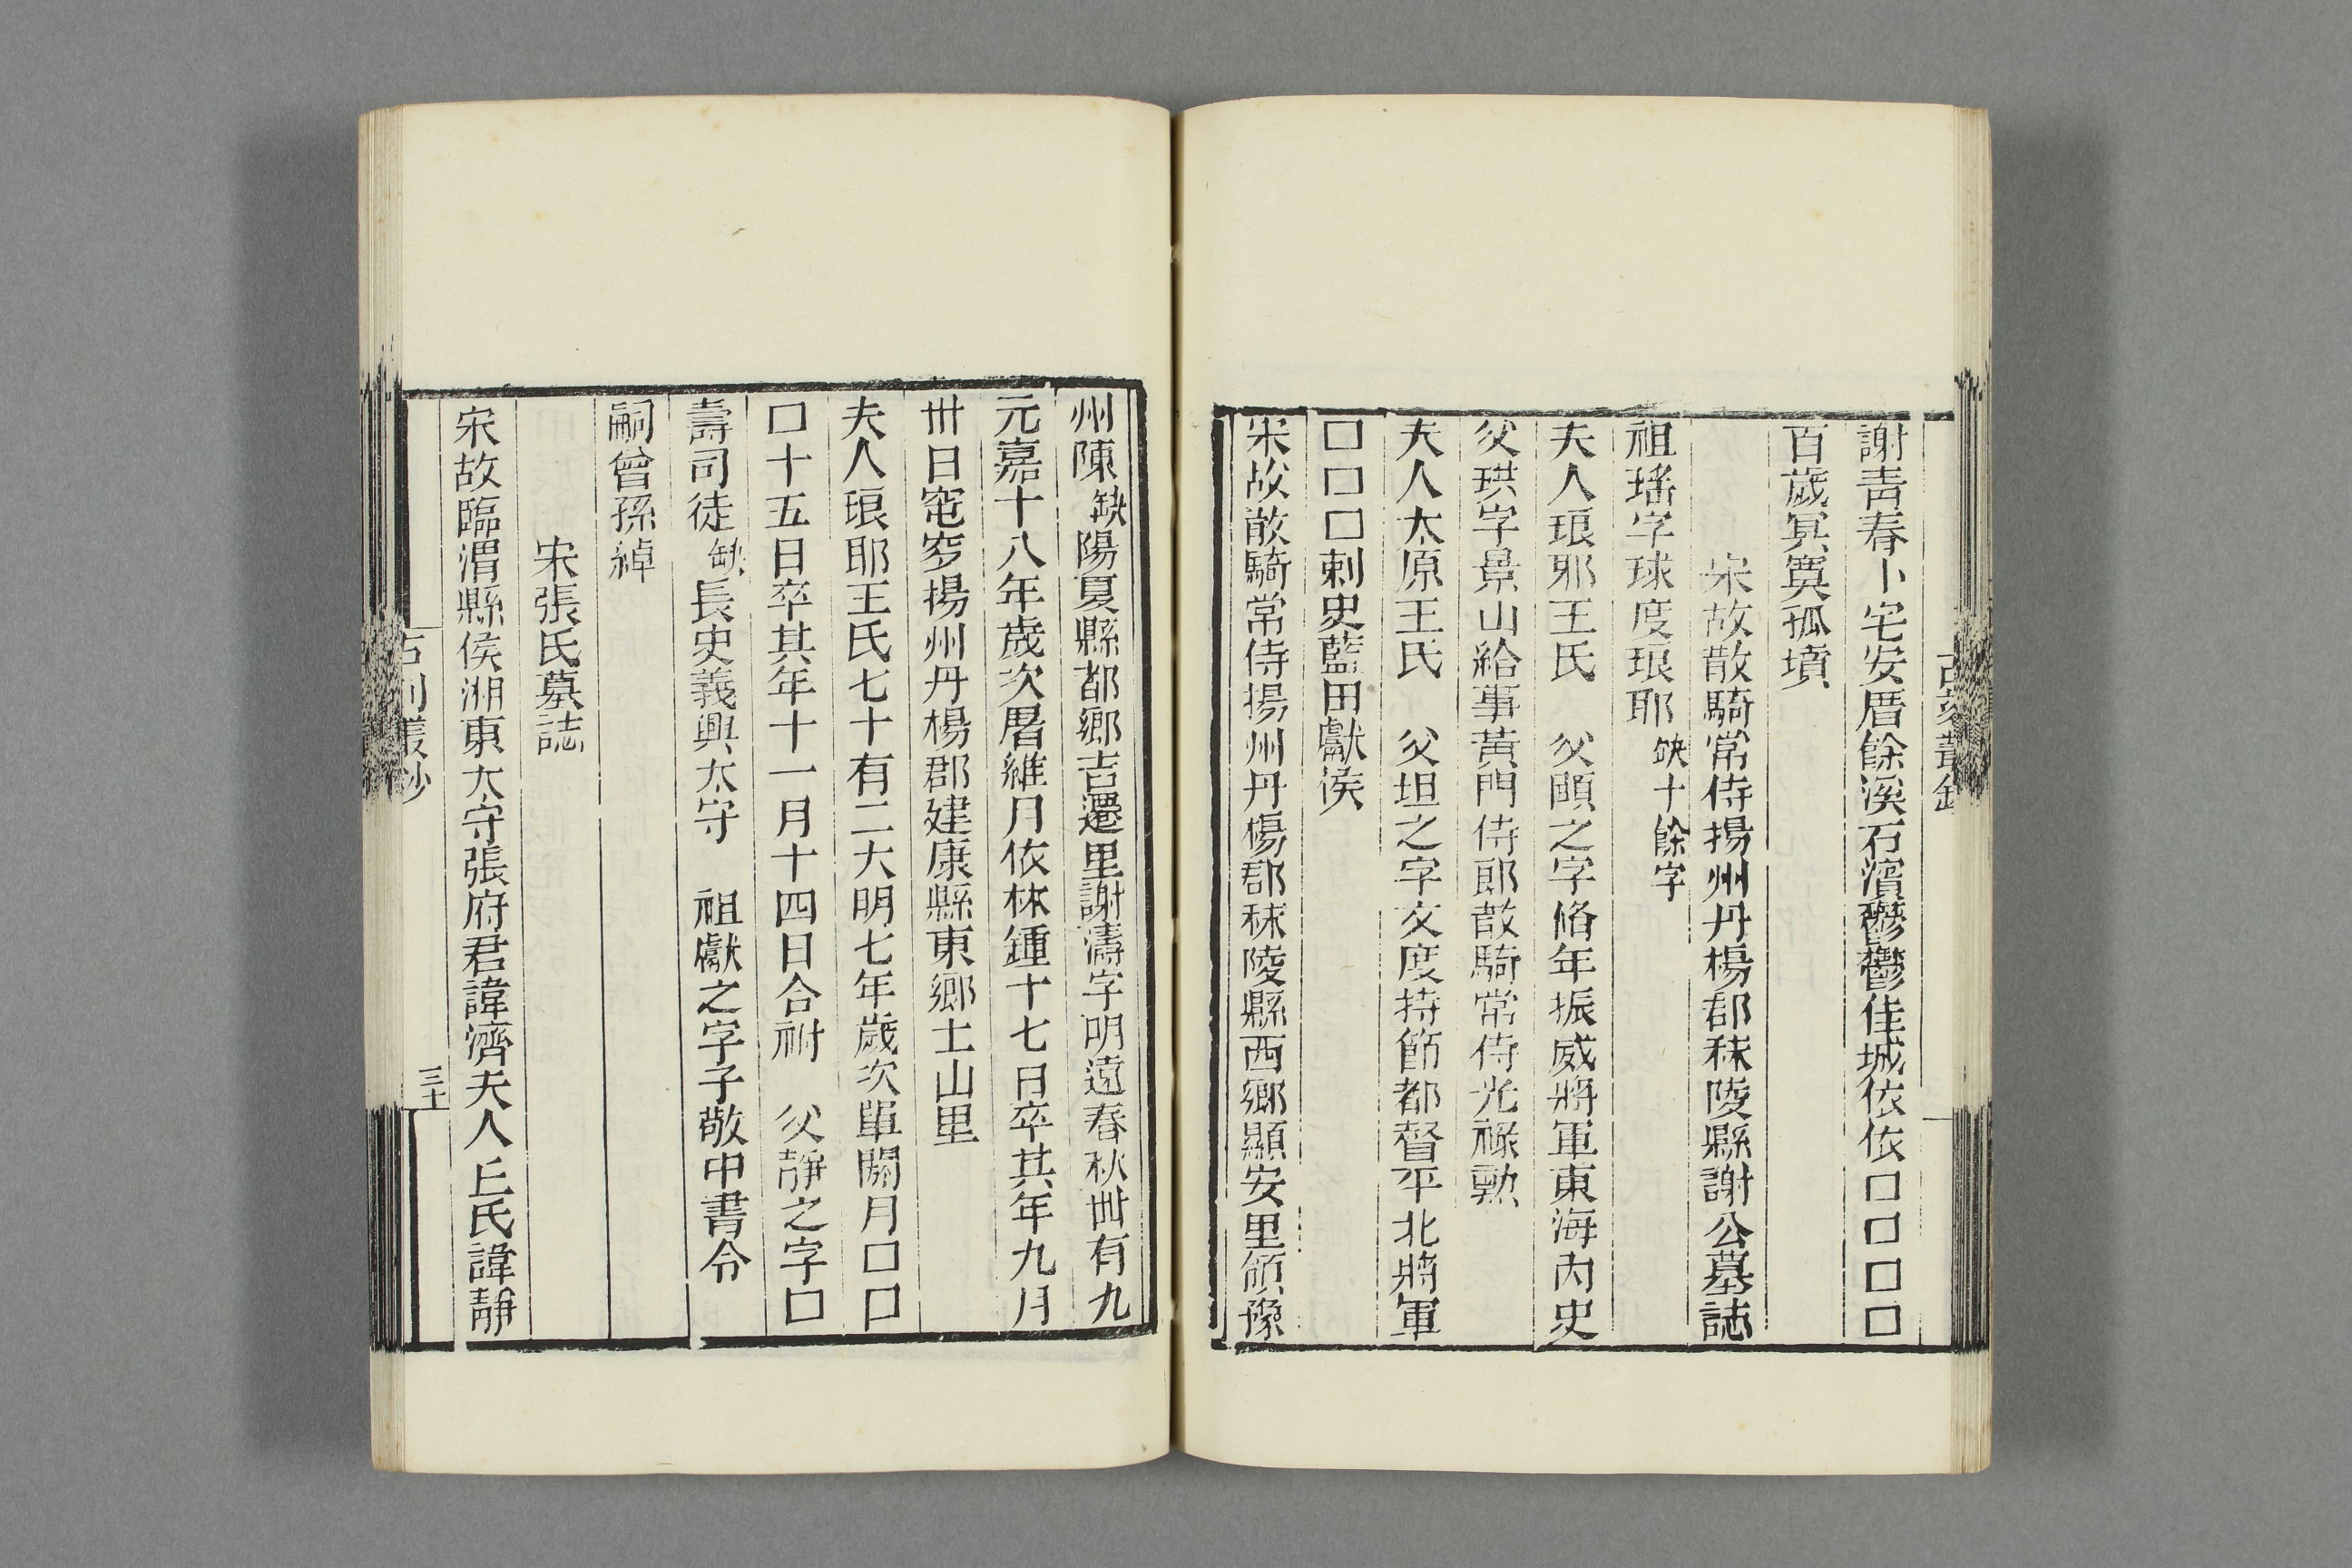 謝靑春卜宅安厝餘溪石濱鬱鬱佳城依依□□□□
百歲冥寞孤墳
宋故散騎常侍揚州丹楊郡秣陵縣謝公墓誌
祖瑤字球度琅耶缺十餘字
夫人琅邪王氏 父頤之字脩年振威將軍東海內史
父珙字景山給事黃門侍郎散騎常侍光祿勲
夫人太原王氏 父坦之字文度持節都督平北將軍
□□□剌史藍田獻侯
宋故散騎常侍揚州丹楊郡秣陵縣西鄉顯安里領豫
州陳缺陽夏縣都鄉吉遷里謝濤字明遠春秋卌有九
元嘉十八年歲次屠維月依林鍾十七日卒其年九月
卅日窀穸揚州丹楊郡建康縣東鄉土山里
夫人琅耶王氏七十有二大明七年歲次單閼月□□
□十五日卒其年十一月十四日合祔 父靜之字□
壽司徒缺長史義興太守 祖獻之字子敬中書令
嗣曾孫綽
宋張氏墓誌
宋故臨渭縣侯湘東太守張府君諱濟夫人丘氏諱靜
古刻叢鈔
三十